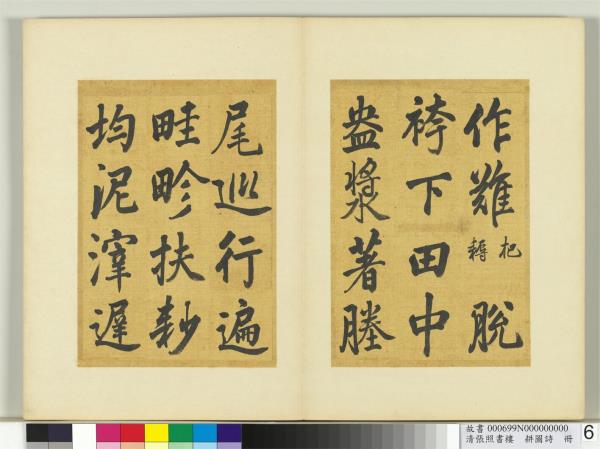 作難杷耨脫
袴下田中
盎漿著塍
尾巡行遍
畦畛扶耖
均泥滓遲
故書 000699N000000000
清張照書樓 耕圖詩 冊
6